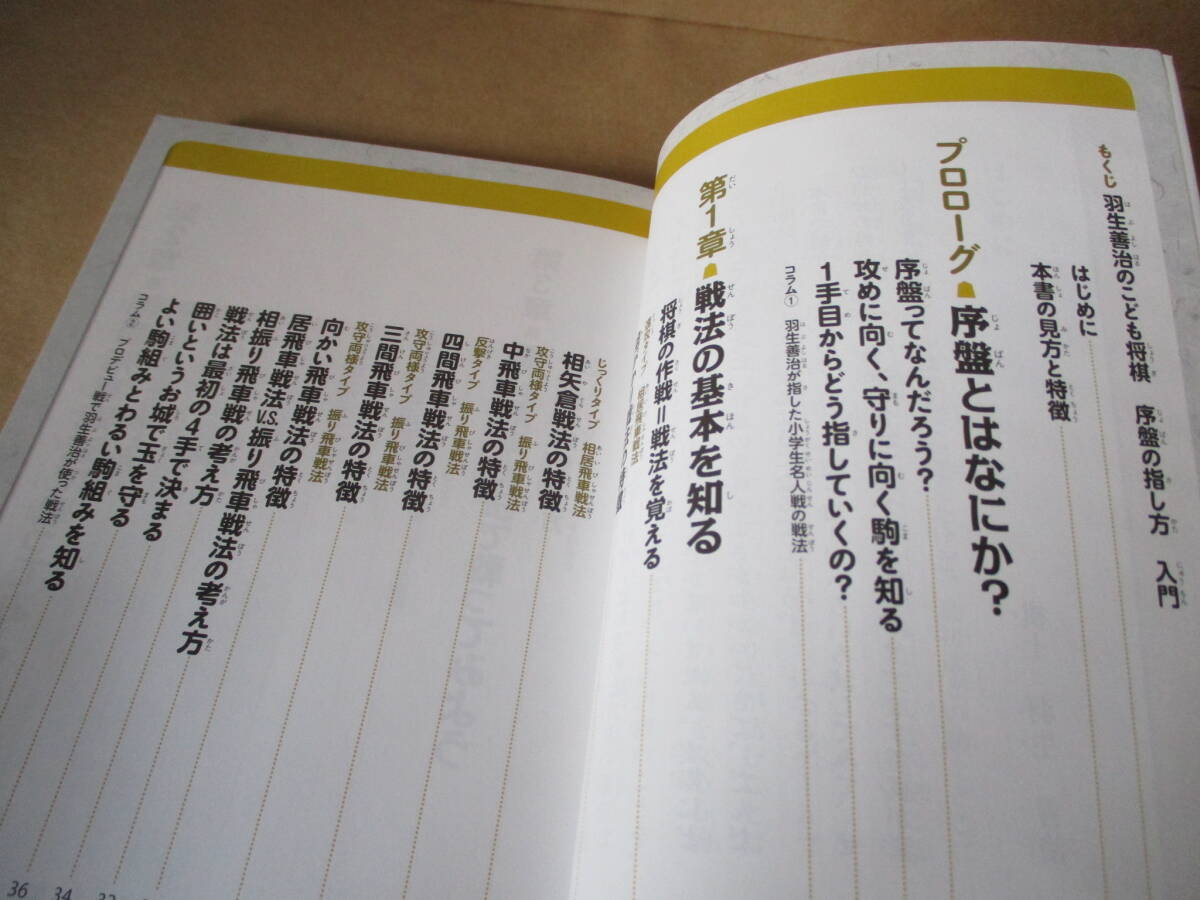 もくじ 羽生善治のこども将棋 序盤の指し方 入門
はじめに
本書の見方と特徴
プロローグ 序盤とはなにか?
序盤ってなんだろう?
攻めに向く、守りに向く駒を知る
1手目からどう指していくの?
コラム① 羽生善治が指した小学生名人戦の戦法
第1章 戦法の基本を知る
将棋の作戦=戦法を覚える
じっくりタイプ 相居飛車戦法
相矢倉戦法の特徴
攻守両様タイプ 振り飛車戦法
中飛車戦法の特徴
反撃タイプ 振り飛車戦法
四間飛車戦法の特徴
攻守両様タイプ 振り飛車戦法
三間飛車戦法の特徴
攻守両様タイプ 振り飛車戦法
向かい飛車戦法の特徴
居飛車戦法の特徴
相振り飛車戦法V.S.振り飛車戦法の考え方
戦法は最初の4手で決まる
囲いというお城で玉を守る
よい駒組みとわるい駒組みを知る
コラム② プロデビュー戦で羽生善治が使った戦法
34
36